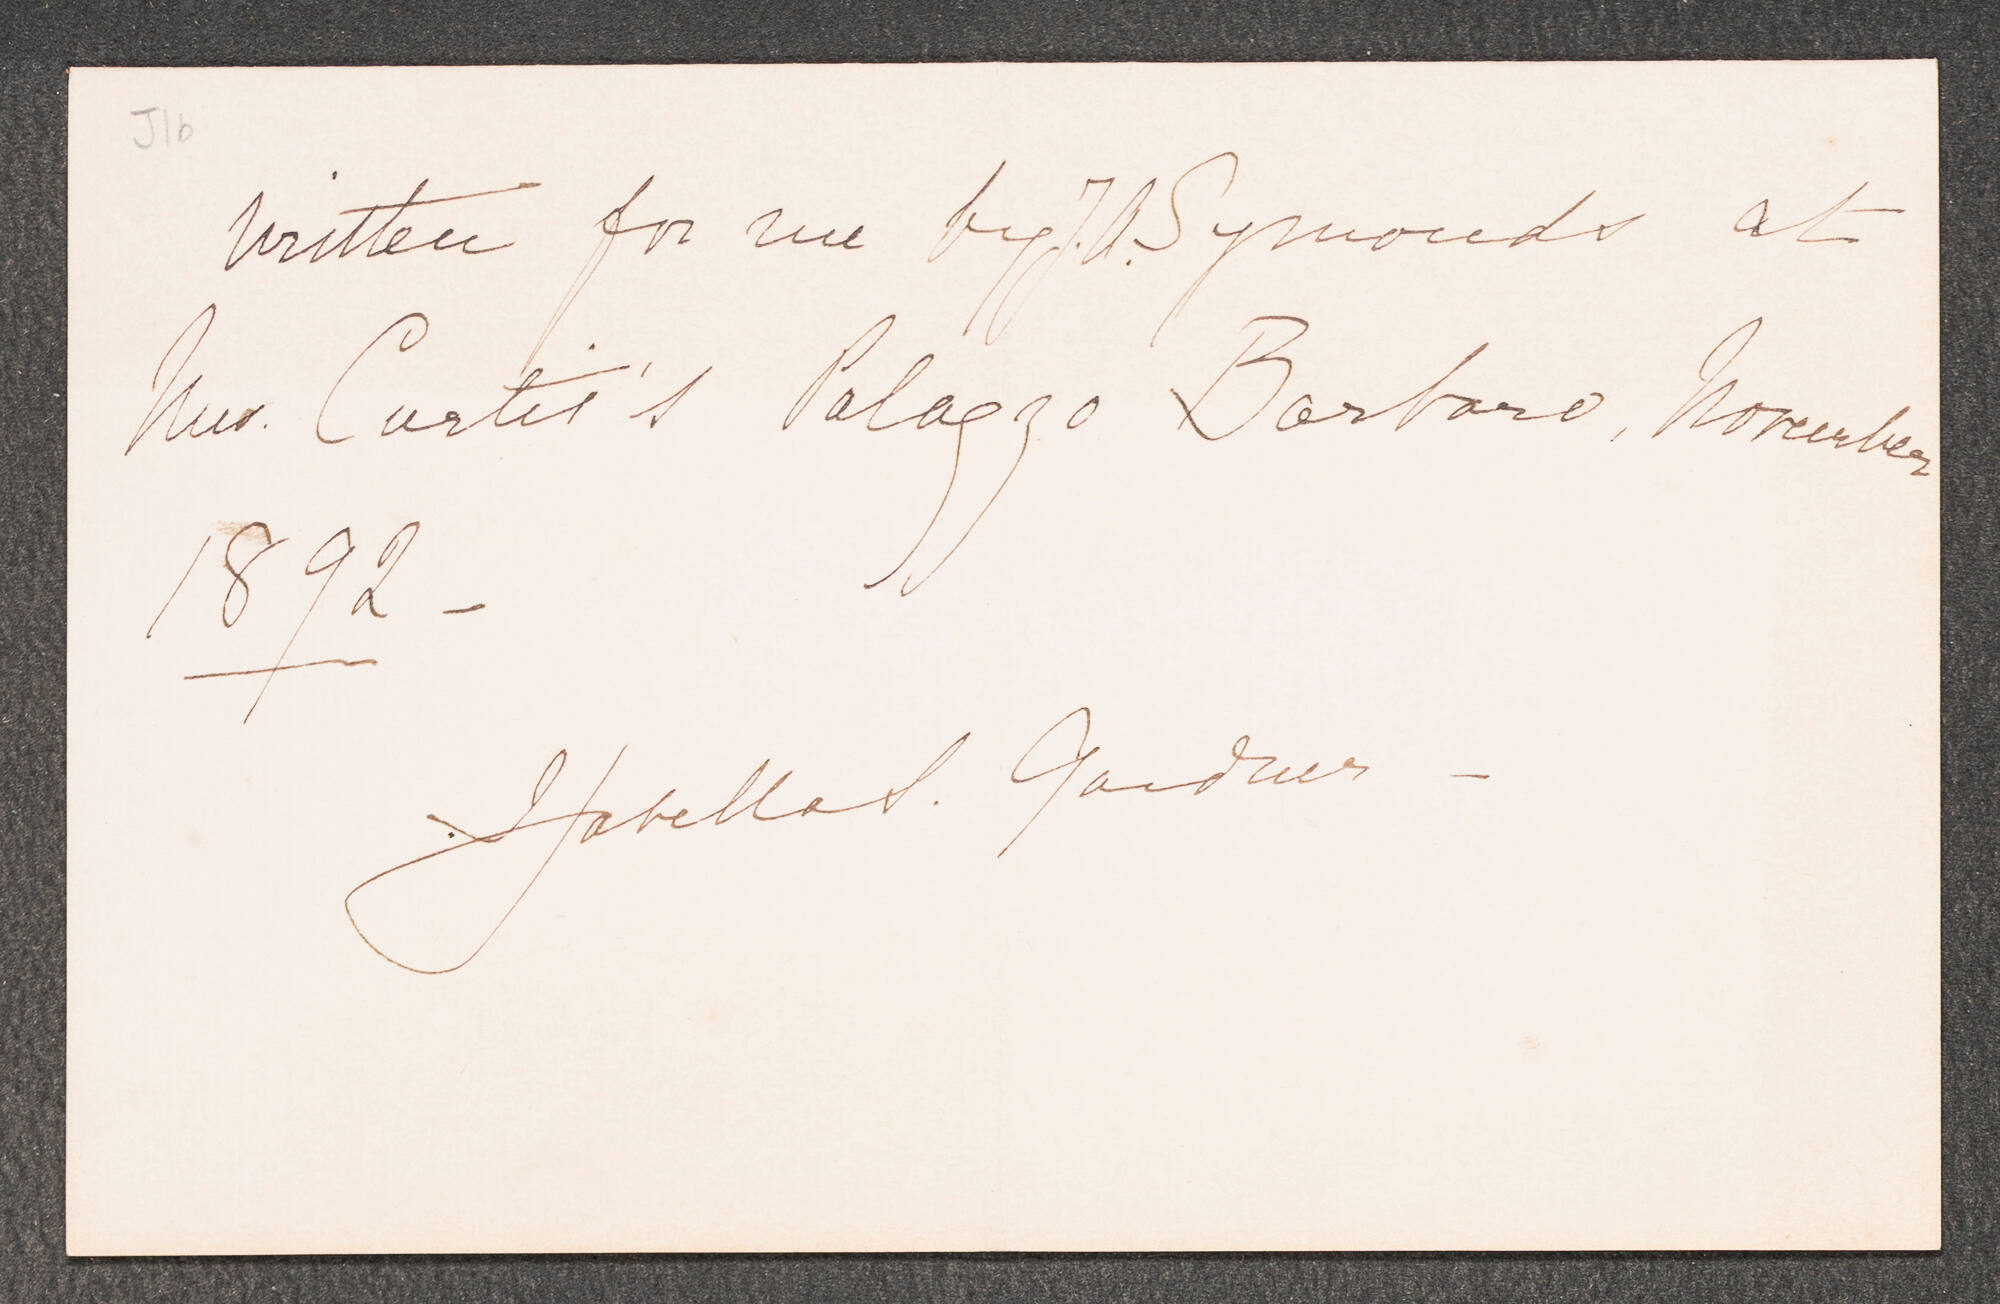 J1b
written for me by J.A. Symonds at
Mrs. Curtis's Palazzo Barbaro, November
1892 –
Isabella S. Gardner –